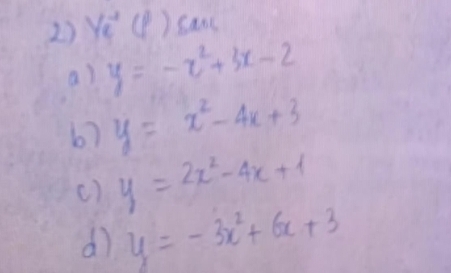 2) Vẽ (P) sau
a) y = -x² + 3x - 2
b) y = x² - 4x + 3
c) y = 2x² - 4x + 1
d) y = -3x² + 6x + 3